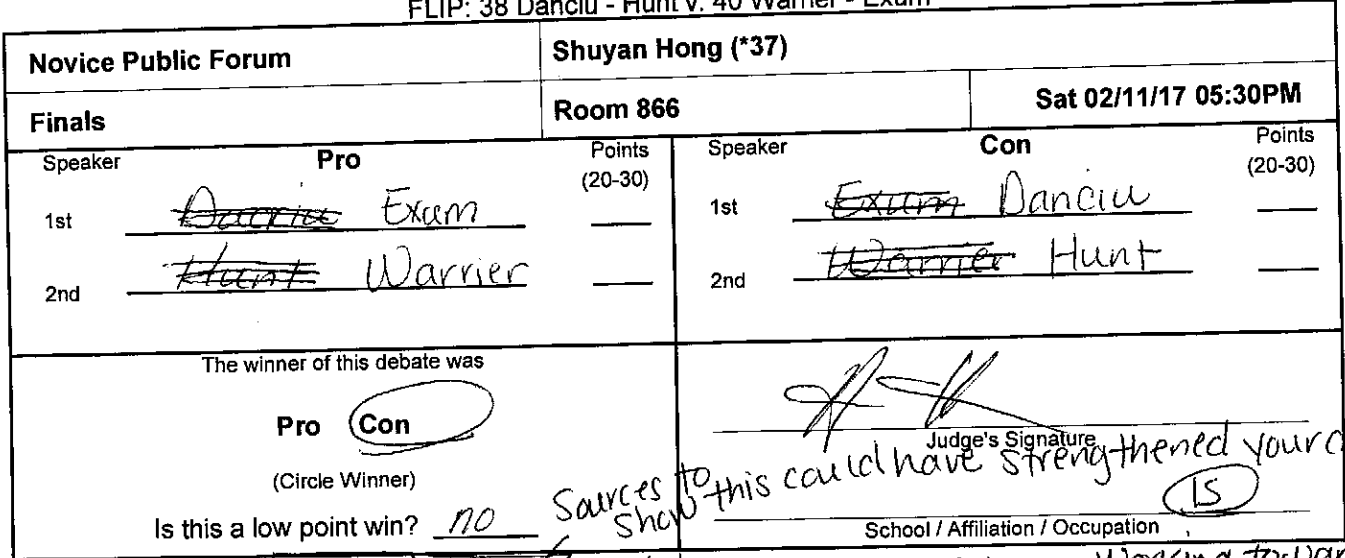 FLIP: 38 Danciu - Hunt v. 40 Warrier - Exum
Novice Public Forum
Shuyan Hong (*37)
Finals
Room 866
Sat 02/11/17 05:30PM
Speaker Pro Points
(20-30)
1st Danciu Exum
2nd Hunt Warrier
Speaker Con Points
(20-30)
1st Exum Danciu
2nd Warrier Hunt
The winner of this debate was
Pro Con
(Circle Winner)
Is this a low point win? no
Judge's Signature
Sources to show this could have strengthened your
IS
School / Affiliation / Occupation